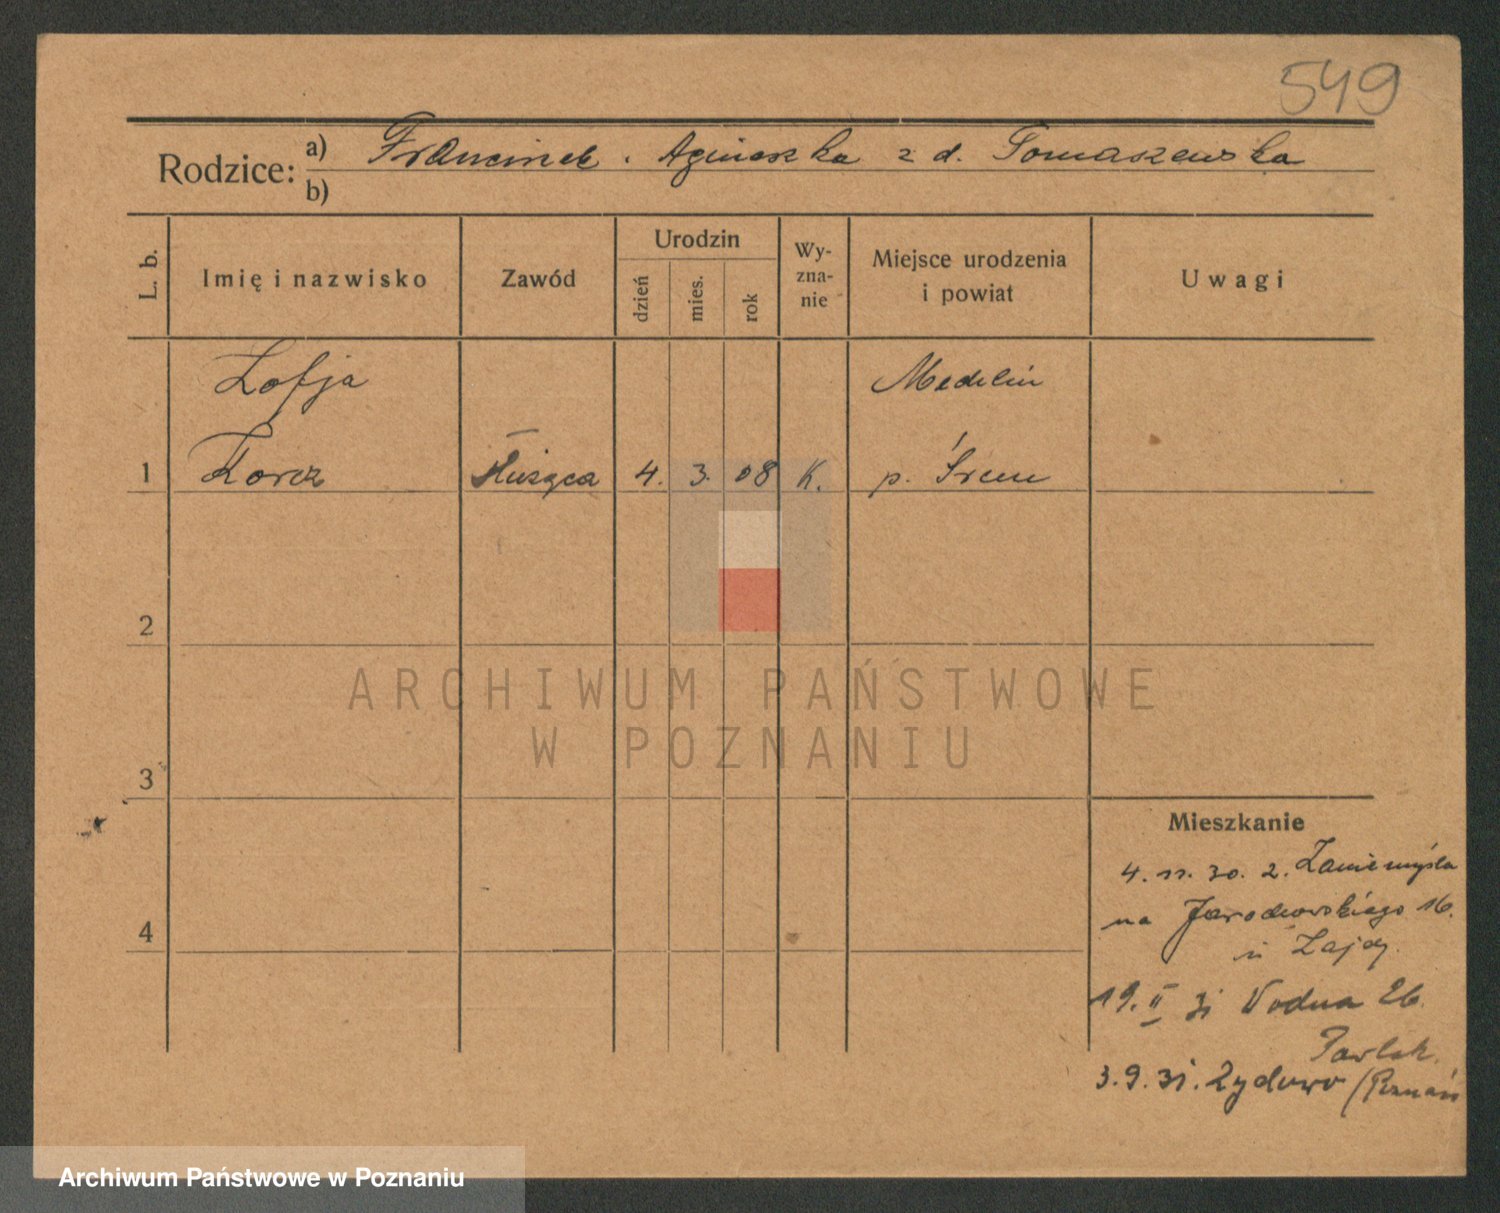 549
Rodzice: a) Franciszek . Agnieszka z d. Tomaszewska
b)
L. b.
Imię i nazwisko
Zawód
Urodzin
dzień
mies.
rok
Wy-
zna-
nie
Miejsce urodzenia
i powiat
Uwagi
Zofja
Medelin
1 Korcz Służąca 4. 3. 08 K. p. Śrem
2
ARCHIWUM PAŃSTWOWE
W POZNANIU
3
4
Mieszkanie
4. 11. 30. z. Zaniemyśla
na Jarochowskiego 16.
u Zajdy.
19. II 31 Wodna 26.
Pawlak.
3. 9. 31. Żydowo (Poznań
Archiwum Państwowe w Poznaniu